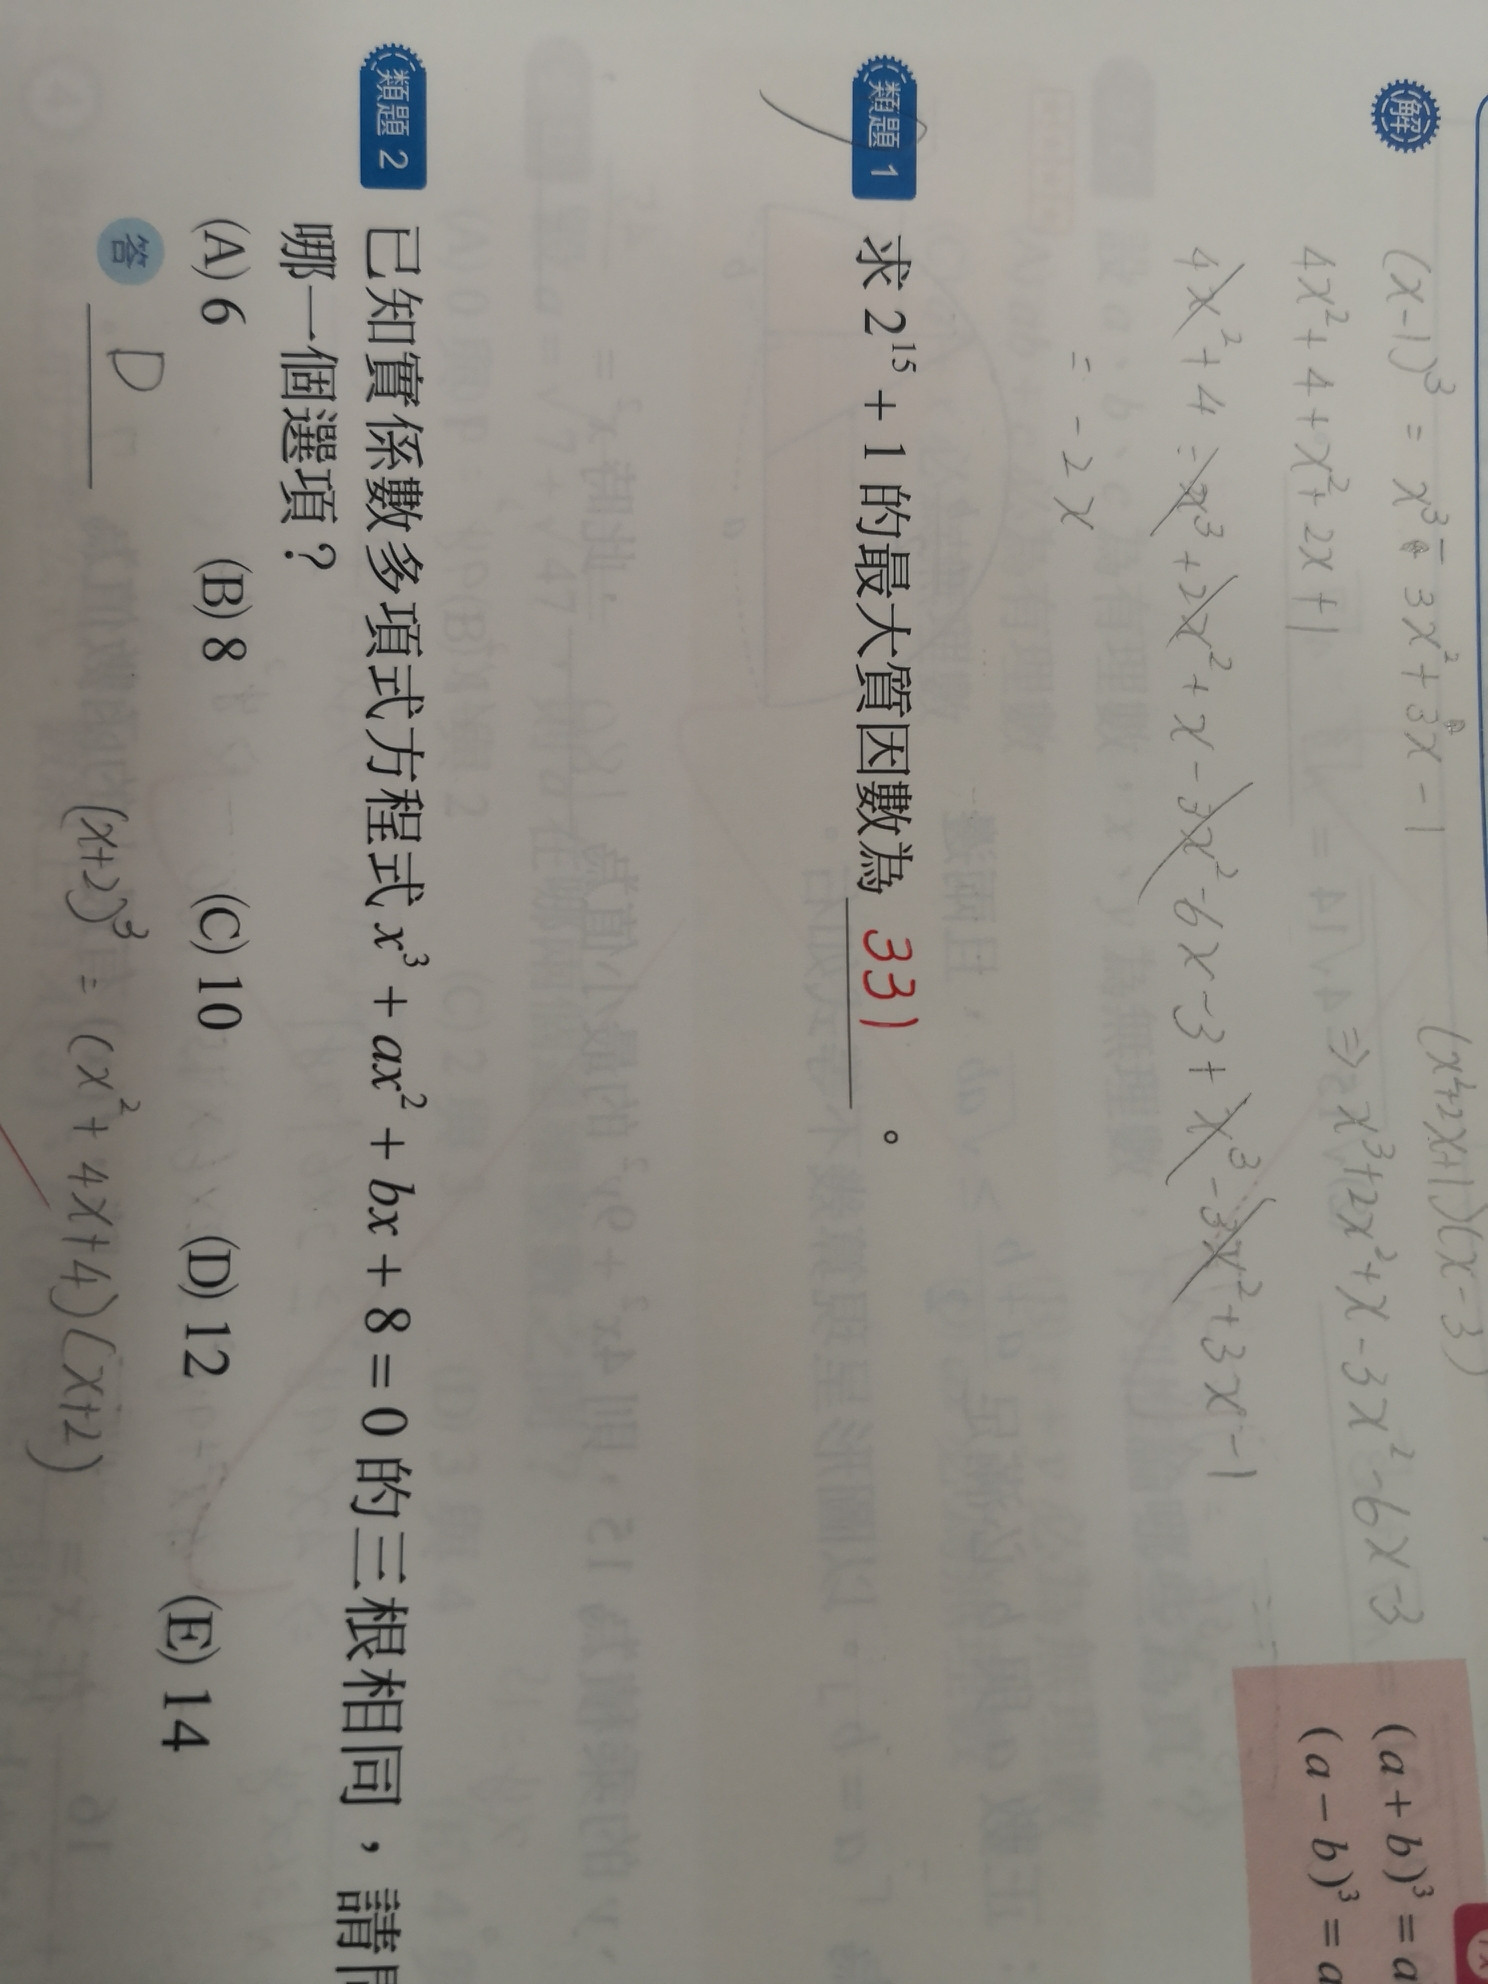 解
(x-1)³ = x³ - 3x² + 3x - 1
(x²+2x+1)(x-3)
4x² + 4 + x² + 2x + 1
⇒ x³ + 2x² + x - 3x² - 6x - 3
4x² + 4 = x³ + 2x² + x - 3x² - 6x - 3 + x³ - 3x² + 3x - 1
= -2x
(a + b)³ = a
(a - b)³ = a
類題 1 求 2¹⁵ + 1 的最大質因數為 331 。
類題 2 已知實係數多項式方程式 x³ + ax² + bx + 8 = 0 的三根相同,請
哪一個選項?
(A) 6 (B) 8 (C) 10 (D) 12 (E) 14
答 D
(x+2)³ = (x² + 4x + 4)(x+2)